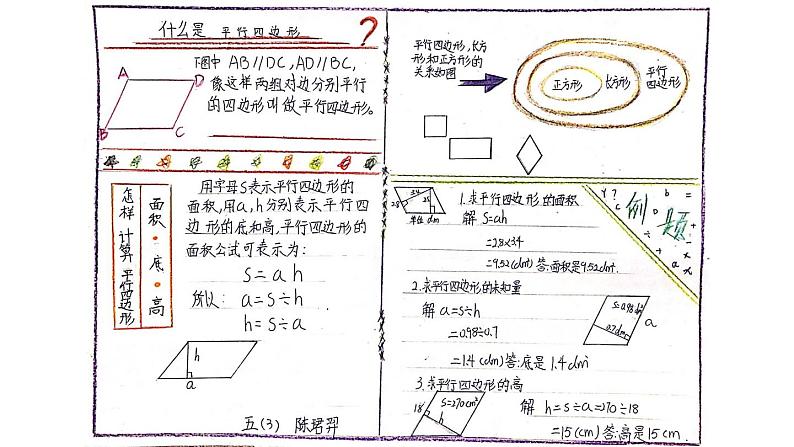 什么是 平行四边形 ?
下图中 AB∥DC,AD∥BC,
像这样两组对边分别平行
的四边形叫做平行四边形。
A
D
B
C
怎样计算平行四边形
面积·底·高
用字母S表示平行四边形的
面积,用a,h分别表示平行四
边形的底和高,平行四边形的
面积公式可表示为:
S=ah
所以: a=S÷h
h=S÷a
h
a
五(3) 陈珺羿
平行四边形,长方
形和正方形的
关系如图
正方形
长方形
平行
四边形
例题
3.4
2.8
单位 dm
1.求平行四边形的面积
解 S=ah
=2.8×3.4
=9.52(dm) 答:面积是9.52dm².
2.求平行四边形的未知量
解 a=S÷h
=0.98÷0.7
=1.4(dm) 答:底是1.4dm
S=0.98dm²
0.7dm
a
3.求平行四边形的高
S=270cm²
18
h
解 h=S÷a=270÷18
=15(cm) 答:高是15cm.